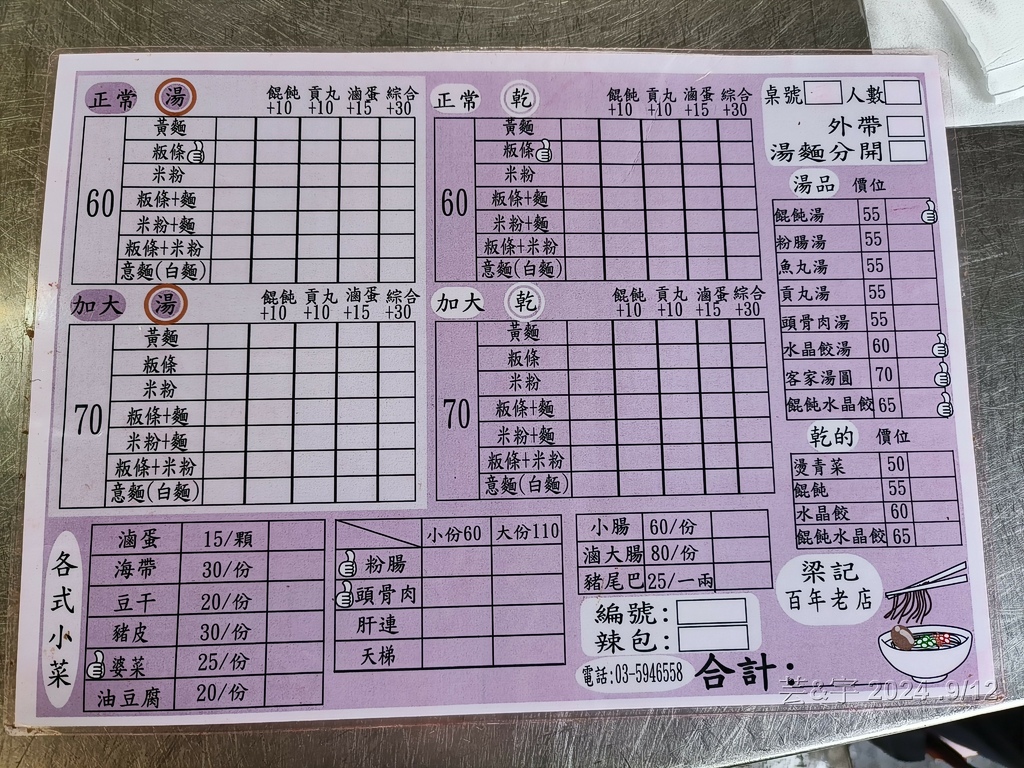 正常 湯 餛飩+10 貢丸+10 滷蛋+15 綜合+30
60
黃麵
粄條
米粉
粄條+麵
米粉+麵
粄條+米粉
意麵(白麵)
正常 乾 餛飩+10 貢丸+10 滷蛋+15 綜合+30
60
黃麵
粄條
米粉
粄條+麵
米粉+麵
粄條+米粉
意麵(白麵)
加大 湯 餛飩+10 貢丸+10 滷蛋+15 綜合+30
70
黃麵
粄條
米粉
粄條+麵
米粉+麵
粄條+米粉
意麵(白麵)
加大 乾 餛飩+10 貢丸+10 滷蛋+15 綜合+30
70
黃麵
粄條
米粉
粄條+麵
米粉+麵
粄條+米粉
意麵(白麵)
桌號 人數
外帶
湯麵分開
湯品 價位
餛飩湯 55
粉腸湯 55
魚丸湯 55
貢丸湯 55
頭骨肉湯 55
水晶餃湯 60
客家湯圓 70
餛飩水晶餃 65
乾的 價位
燙青菜 50
餛飩 55
水晶餃 60
餛飩水晶餃 65
各式小菜
滷蛋 15/顆
海帶 30/份
豆干 20/份
豬皮 30/份
婆菜 25/份
油豆腐 20/份
小份60 大份110
粉腸
頭骨肉
肝連
天梯
小腸 60/份
滷大腸 80/份
豬尾巴 25/一兩
編號:
辣包:
電話:03-5946558 合計:
梁記
百年老店
2024 9/12